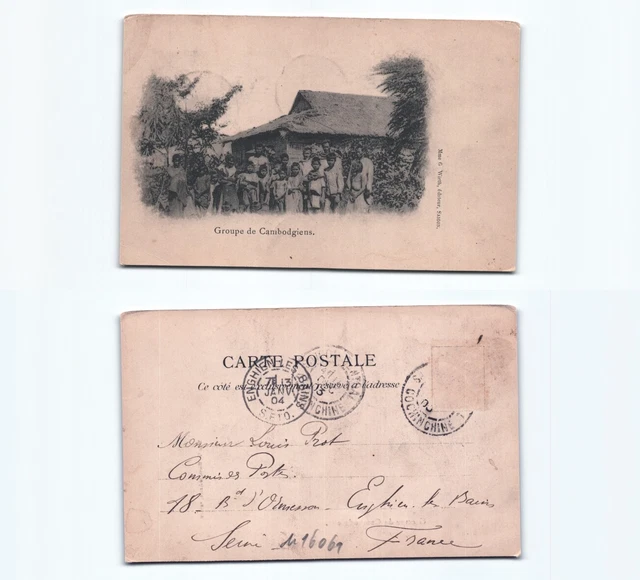 Groupe de Cambodgiens.
Mme G. Wirth, éditeur, Saïgon.
CARTE POSTALE
Ce côté est exclusivement réservé à l'adresse
ENGHIEN-LES-BAINS
13
JANV
04
S.ET O.
CENTRAL
COCHINCHINE
COCHINCHINE
Monsieur Louis Prot
Commis des Postes
18 - Bd d'Ormesson - Enghien les Bains
Seine
France